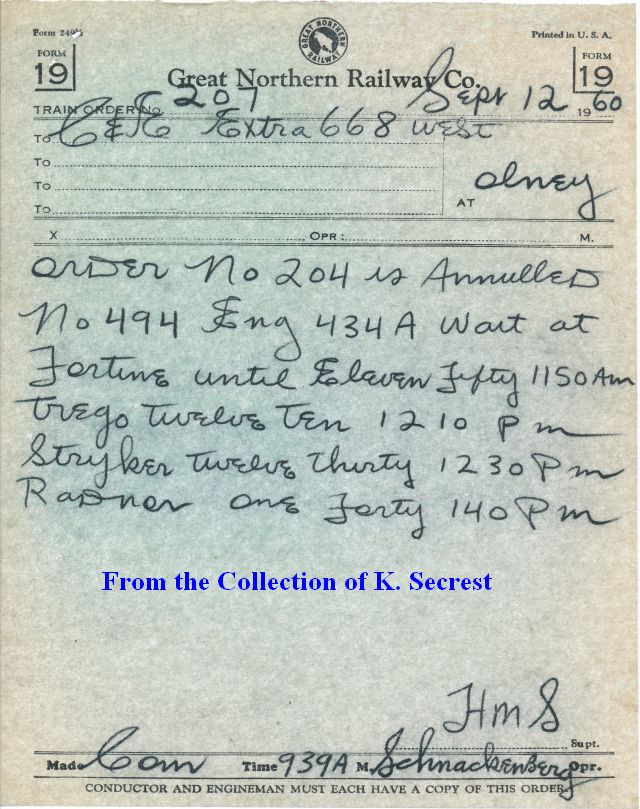 Form 249½
Printed in U. S. A.
GREAT NORTHERN RAILWAY
FORM 19
FORM 19
Great Northern Railway Co.
TRAIN ORDER No. 207 Sept 12 1960
To C&E Extra 668 West
To
To
To
AT Olney
X OPR: M.
ORDER No 204 is ANNULLED
No 494 Eng 434A Wait at
Fortine until Eleven Fifty 1150 Am
Trego Twelve Ten 1210 Pm
Stryker Twelve Thirty 1230 Pm
Radnor one Forty 140 Pm
From the Collection of K. Secrest
HMS
Supt.
Made Com Time 939A M. Schnackenberg Opr.
CONDUCTOR AND ENGINEMAN MUST EACH HAVE A COPY OF THIS ORDER